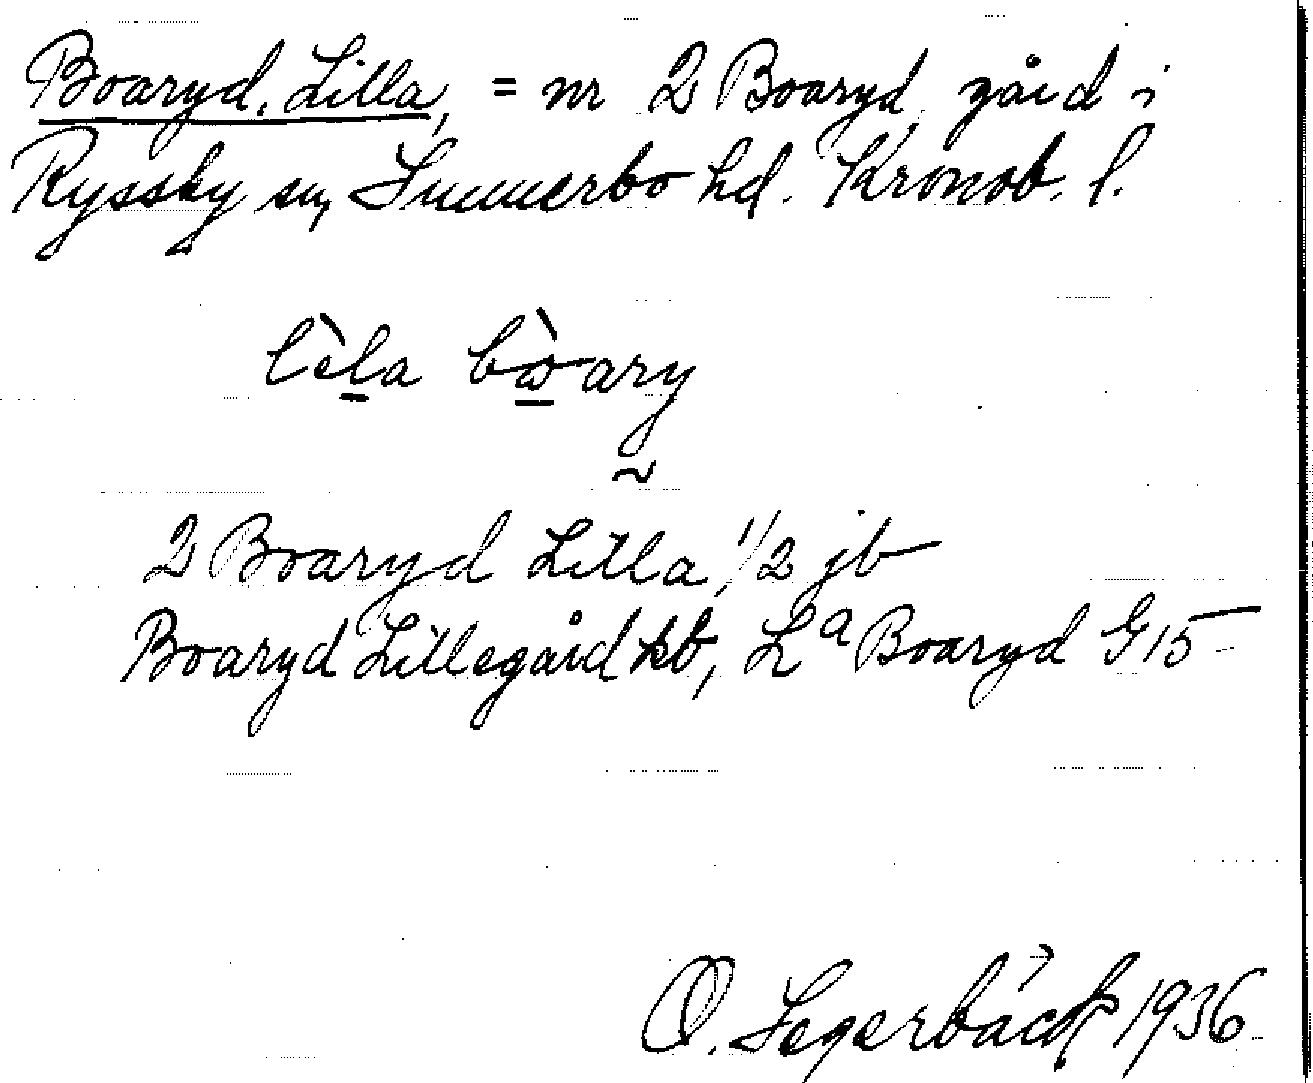 Boaryd, Lilla, = nr 2 Boaryd, gård i
Ryssby sn, Sunnerbo hd. Kronob. l.
lèla bòary
2 Boaryd Lilla, 1/2 jb
Boaryd Lillegård kb, Lª Boaryd G15
O. Segerbäck 1936